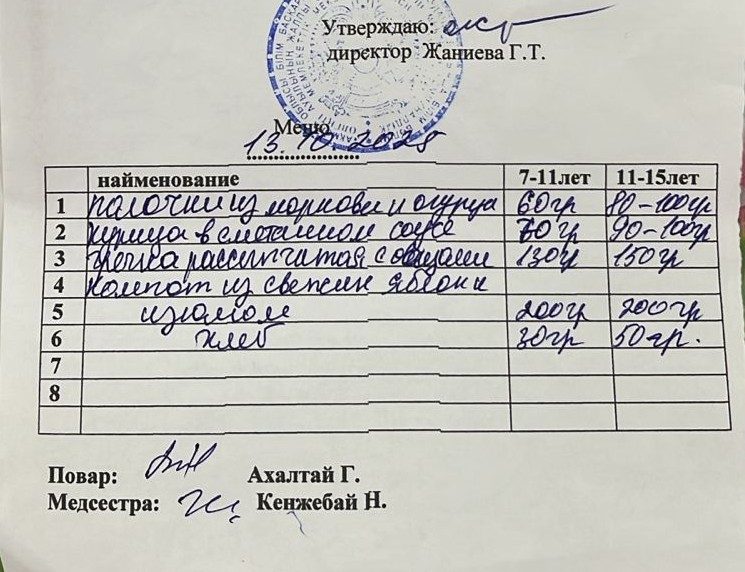 Утверждаю:
директор Жаниева Г.Т.
Меню
13.10.2025
найменование 7-11лет 11-15лет
1 палочки из моркови и огурца 60гр 80-100гр
2 курица в сметанном соусе 70гр 90-100гр
3 гречка рассыпчатая с овощами 130гр 150гр
4 компот из свежих яблок и
5 изюмом 200гр 200гр
6 хлеб 30гр 50гр.
7
8
Повар: Ахалтай Г.
Медсестра: Кенжебай Н.